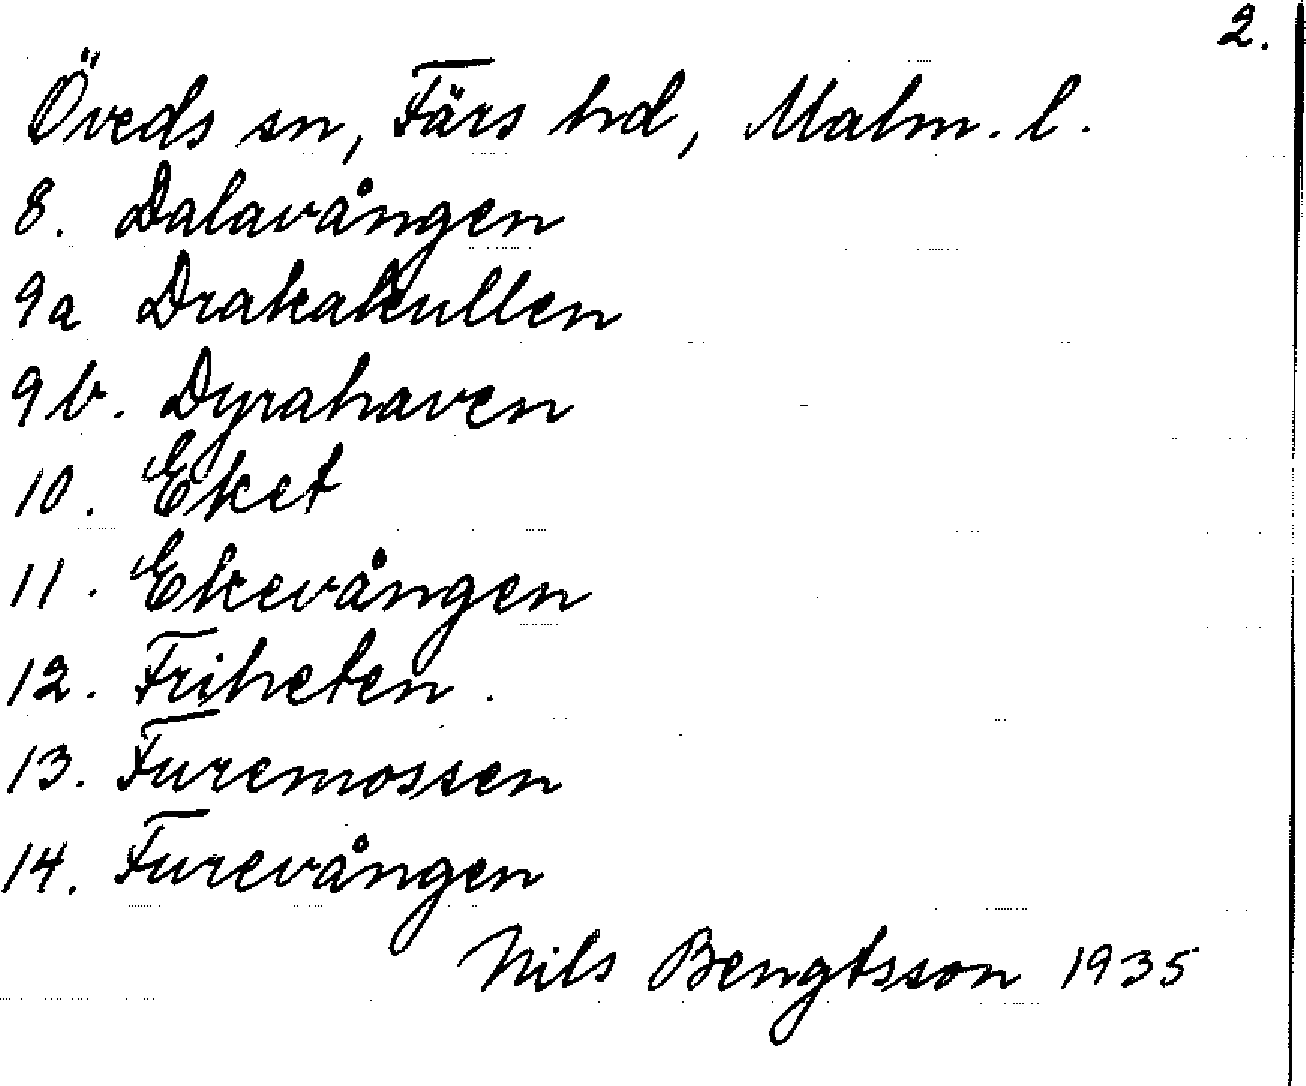 2.
Öveds sn, Färs hd, Malm. l.
8. Dalavången
9a Drakakullen
9b. Dyrahaven
10. Eket
11. Ekevången
12. Friheten.
13. Furemossen
14. Furevången
Nils Bengtsson 1935